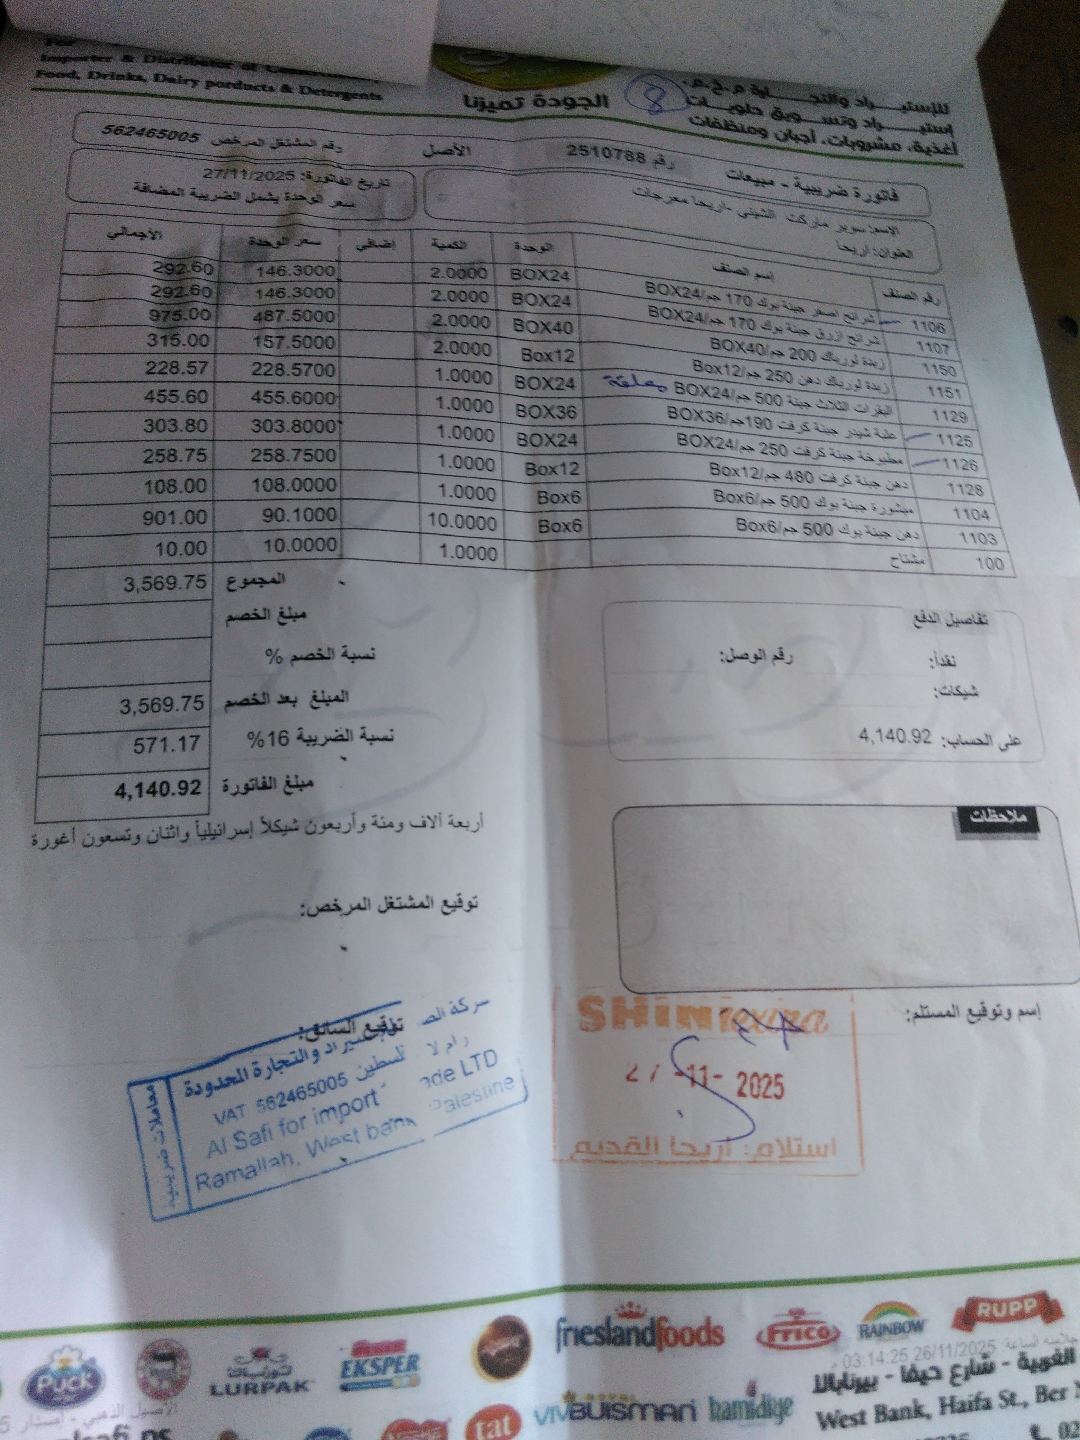 Importer & Distributor of
Food, Drinks, Dairy porducts & Detergents
للإستيراد والتجارة م.خ.م.
إستيراد وتسويق حلويات
أغذية، مشروبات، أجبان ومنظفات
8
الجودة تميزنا
فاتورة ضريبية - مبيعات رقم 2510788 الأصل رقم المشتغل المرخص 562465005
الاسم: سوبر ماركت الشيني -اريحا معرجات
العنوان: أريحا
تاريخ الفاتورة: 27/11/2025
سعر الوحدة يشمل الضريبة المضافة
رقم الصنف إسم الصنف الوحدة الكمية إضافي سعر الوحدة الأجمالي
1106 شرائح اصفر جبنة بوك 170 جم/BOX24 BOX24 2.0000 146.3000 292.60
1107 شرائح ازرق جبنة بوك 170 جم/BOX24 BOX24 2.0000 146.3000 292.60
1150 زبدة لورباك 200 جم/BOX40 BOX40 2.0000 487.5000 975.00
1151 زبدة لورباك دهن 250 جم/Box12 Box12 2.0000 157.5000 315.00
1129 البقرات الثلاث جبنة 500 جم/BOX24 معلقة BOX24 1.0000 228.5700 228.57
1125 علبة شيدر جبنة كرفت 190جم/BOX36 BOX36 1.0000 455.6000 455.60
1126 مطبوخة جبنة كرفت 250 جم/BOX24 BOX24 1.0000 303.8000 303.80
1128 دهن جبنة كرفت 480 جم/Box12 Box12 1.0000 258.7500 258.75
1104 مبشورة جبنة بوك 500 جم/Box6 Box6 1.0000 108.0000 108.00
1103 دهن جبنة بوك 500 جم/Box6 Box6 10.0000 90.1000 901.00
100 مشتاح 1.0000 10.0000 10.00
المجموع 3,569.75
مبلغ الخصم
نسبة الخصم %
المبلغ بعد الخصم 3,569.75
نسبة الضريبة 16% 571.17
مبلغ الفاتورة 4,140.92
أربعة آلاف ومئة وأربعون شيكلاً إسرائيلياً واثنان وتسعون أغورة
تفاصيل الدفع
نقداً: رقم الوصل:
شيكات:
على الحساب: 4,140.92
ملاحظات
توقيع المشتغل المرخص:
توقيع السائق:
إسم وتوقيع المستلم:
معاملات ضريبية
شركة الص
والتجارة المحدودة
فلسطين 562465005 VAT
Al Safi for import
ade LTD
Ramallah, West bank Palestine
SHINI extra
27 -11- 2025
استلام: أريحا القديم
Puck
لورباك
LURPAK
EKSPER
frieslandfoods
Frico
RAINBOW
RUPP
tat
VIV
ROYAL
BUISMAN
hamidiye
26/11/2025 03:14:25
الغربية - شارع حيفا - بيرنابالا
West Bank, Haifa St., Ber
02